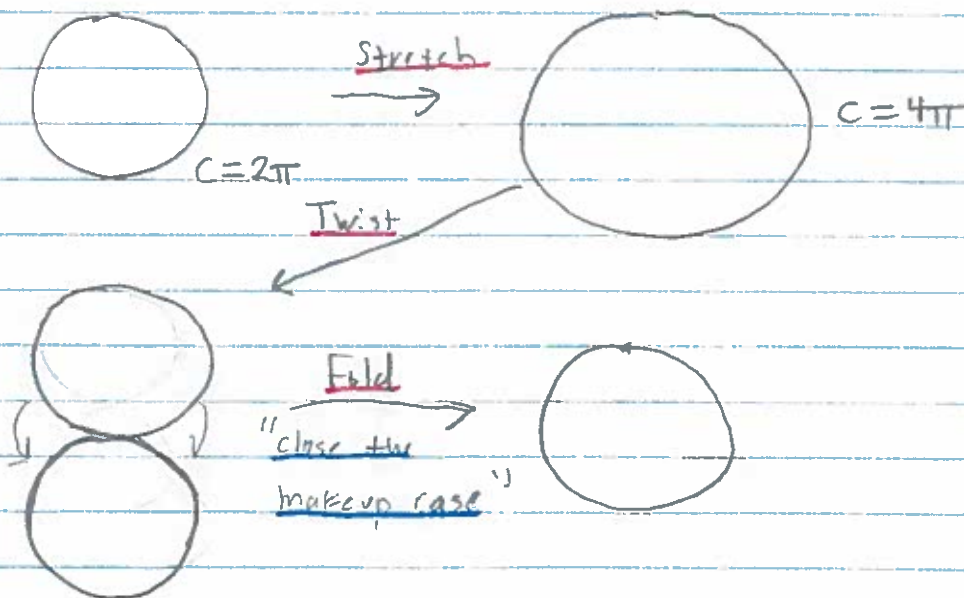 Stretch
C = 4π
C = 2π
Twist
Fold
"close the
makeup case"